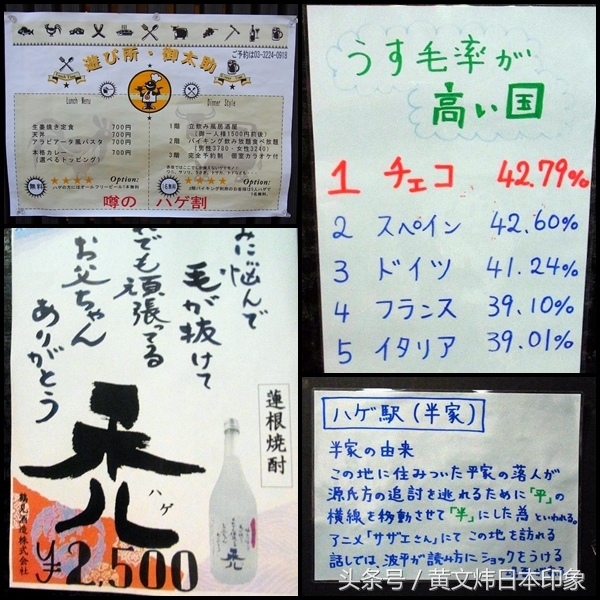 遊び所・御太助
ご予約は03-3224-0918
Lunch Menu
生姜焼き定食 700円
天丼 700円
アラビアータ風パスタ 700円
本格カレー 700円
(選べるトッピング)
Dinner Style
1階 立飲み風居酒屋
(御一人様1500円前後)
2階 バイキング飲み放題食べ放題
(男性3780・女性3240)
3階 完全予約制 個室カラオケ付
無料
Option:
Option:
噂の ハゲ割
うす毛率が
高い国
1 チェコ 42.79%
2 スペイン 42.60%
3 ドイツ 41.24%
4 フランス 39.10%
5 イタリア 39.01%
みに悩んで
毛が抜けて
れでも頑張ってる
お父ちゃん
ありがとう
禿
ハゲ
蓮根焼酎
鶴見酒造株式会社
¥2,500
ハゲ駅(半家)
半家の由来
この地に住みついた平家の落人が
源氏方の追討を逃れるために「平」の
横線を移動させて「半」にした為といわれる。
アニメ「サザエさん」にてこの地を訪れる
話しでは、波平が読み方にショックをうける
头条号 / 黄文炜日本印象